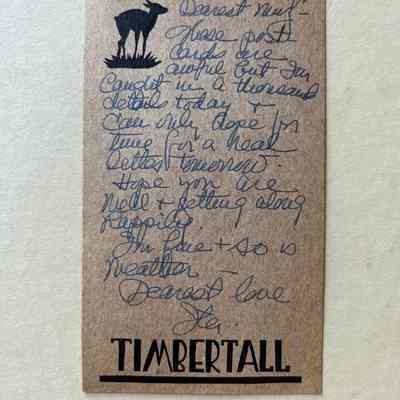 Dearest
These post
cards are
awful but I'm
caught in a thousand
details today +
can only hope for
time for a real
letter tomorrow -
Hope you are
well + getting along
happily.
I'm fine + so is
weather -
Dearest love
TIMBERTALL